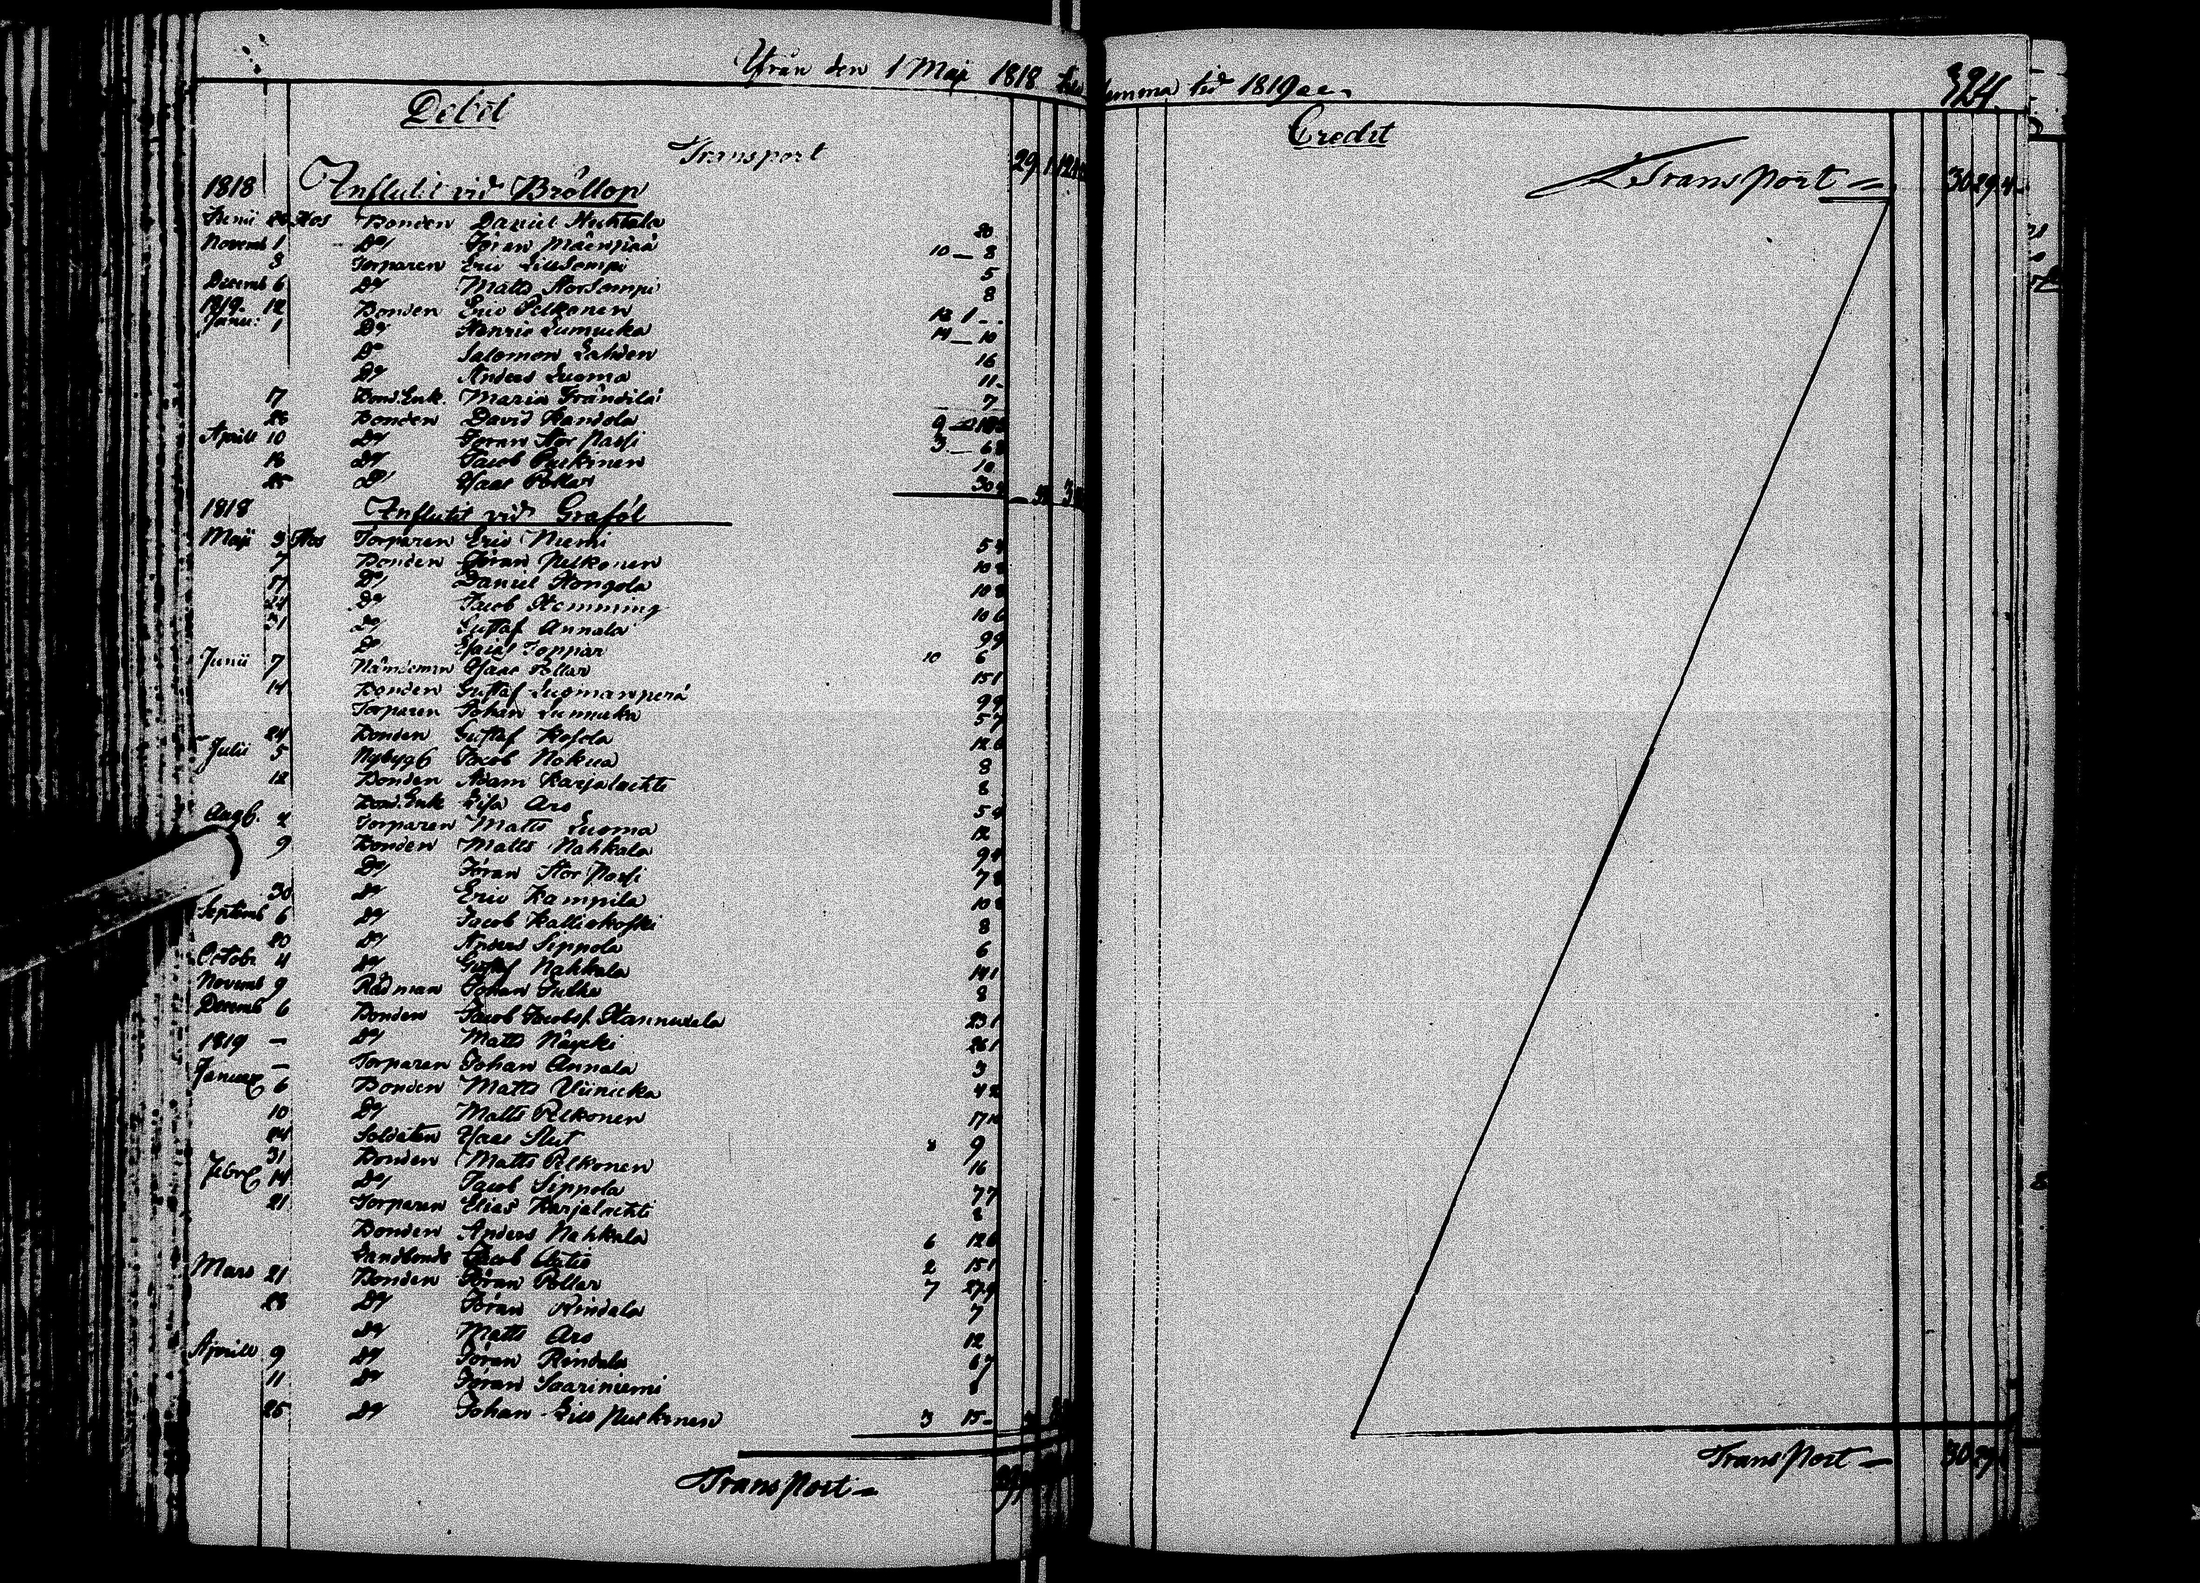 Ifrån den 1 Maji 1818 till samma tid 1819 etc.
324
Debet
Transport 29
1818 Influtit vid Bröllop
Junii 24 Hos Bonden Daniel Huhtala 20
Novemb 1 Do Jöran Mäenpää 10 — 8
3 Torparen Eric Lillsompi 5
Decemb 6 Do Matts Storsompi 8
12 Bonden Eric Pelkonen 12 1 -
1819
Janu: 1 Do Henric Lumucka 14 — 10
Do Salomon Lahden 16
Do Anders Luoma 11
17 Bond.Enk. Maria Frändilä 7
26 Bonden David Kandola 9
Aprill 10 Do Jöran Stor Passi 3 — 6
18 Do Jacob Pulkinen 10
25 Do Isaac Pollar 30
1818 Influtit vid Graföl
Maji 3 Hos Torparen Eric Niemi 5 4
7 Bonden Jöran Pelkonen 10
17 Do Daniel Hongola 10
24 Do Jacob Hemming 10 6
31 Do Gustaf Annala 9 9
Do Esaias Toppar 10 6
Junii 7 Nämdemn Isaac Pollar 15 1
14 Bonden Gustaf Luomanperä 9 9
Torparen Johan Lumucka 5 7
24 Bonden Gustaf Kosola 12 6
Julii 5 Nybygg Jacob Nokua 8
12 Bonden Adam Karjalachti 8
Bond.Enk Lisa Aro 5 4
Aug. 2 Torparen Matts Luoma 12
9 Bonden Matts Nahkala 9
Do Jöran Stor Passi 7
30 Do Eric Kampila 10
Septemb 6 Do Jacob Kalliokoski 8
20 Do Anders Sippola 6
Octobr 4 Do Gustaf Nahkala 14 1
Novemb 9 Rådman Johan Julku 8
Decemb 6 Bonden Jacob Jacobss. Hannuxela 23 1
1819 — Do Matts Näycki 26 1
— Torparen Johan Annala 3
Januar 6 Bonden Matts Viinicka 4
10 Do Matts Pelkonen 17
24 Soldaten Isaac Slut 8 9
31 Bonden Matts Pelkonen 16
Febr 14 Do Jacob Sippola 7 7
21 Torparen Elias Karjalachti 8
Bonden Anders Nahkala 6 12 6
Landbonde Jacob 2 15 1
Mars 21 Bonden Jöran Pollar 7 27 9
28 Do Jöran Rindala 7
Do Matts Aro 12
Aprill 9 Do Jöran Rindala 6 7
11 Do Jöran Saariniemi
25 Do Johan Lill Pulkinen 3 15 -
Transport
Credit
Transport 3029.4
Transport 3029